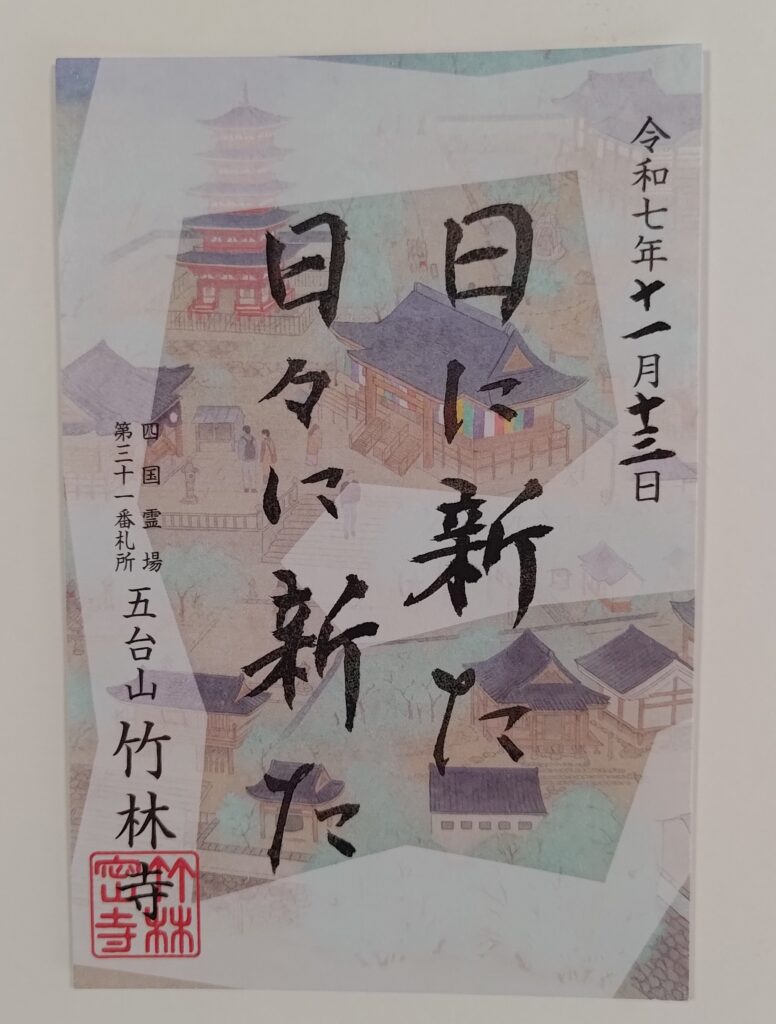 令和七年十一月十三日
日に新た
日々に新た
四国霊場
第三十一番札所
五台山 竹林寺
竹林密寺